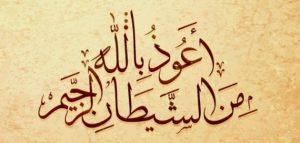 أَعُوذُ بِاللّٰهِ
مِنَ الشَّيْطَانِ الرَّجِيْمِ